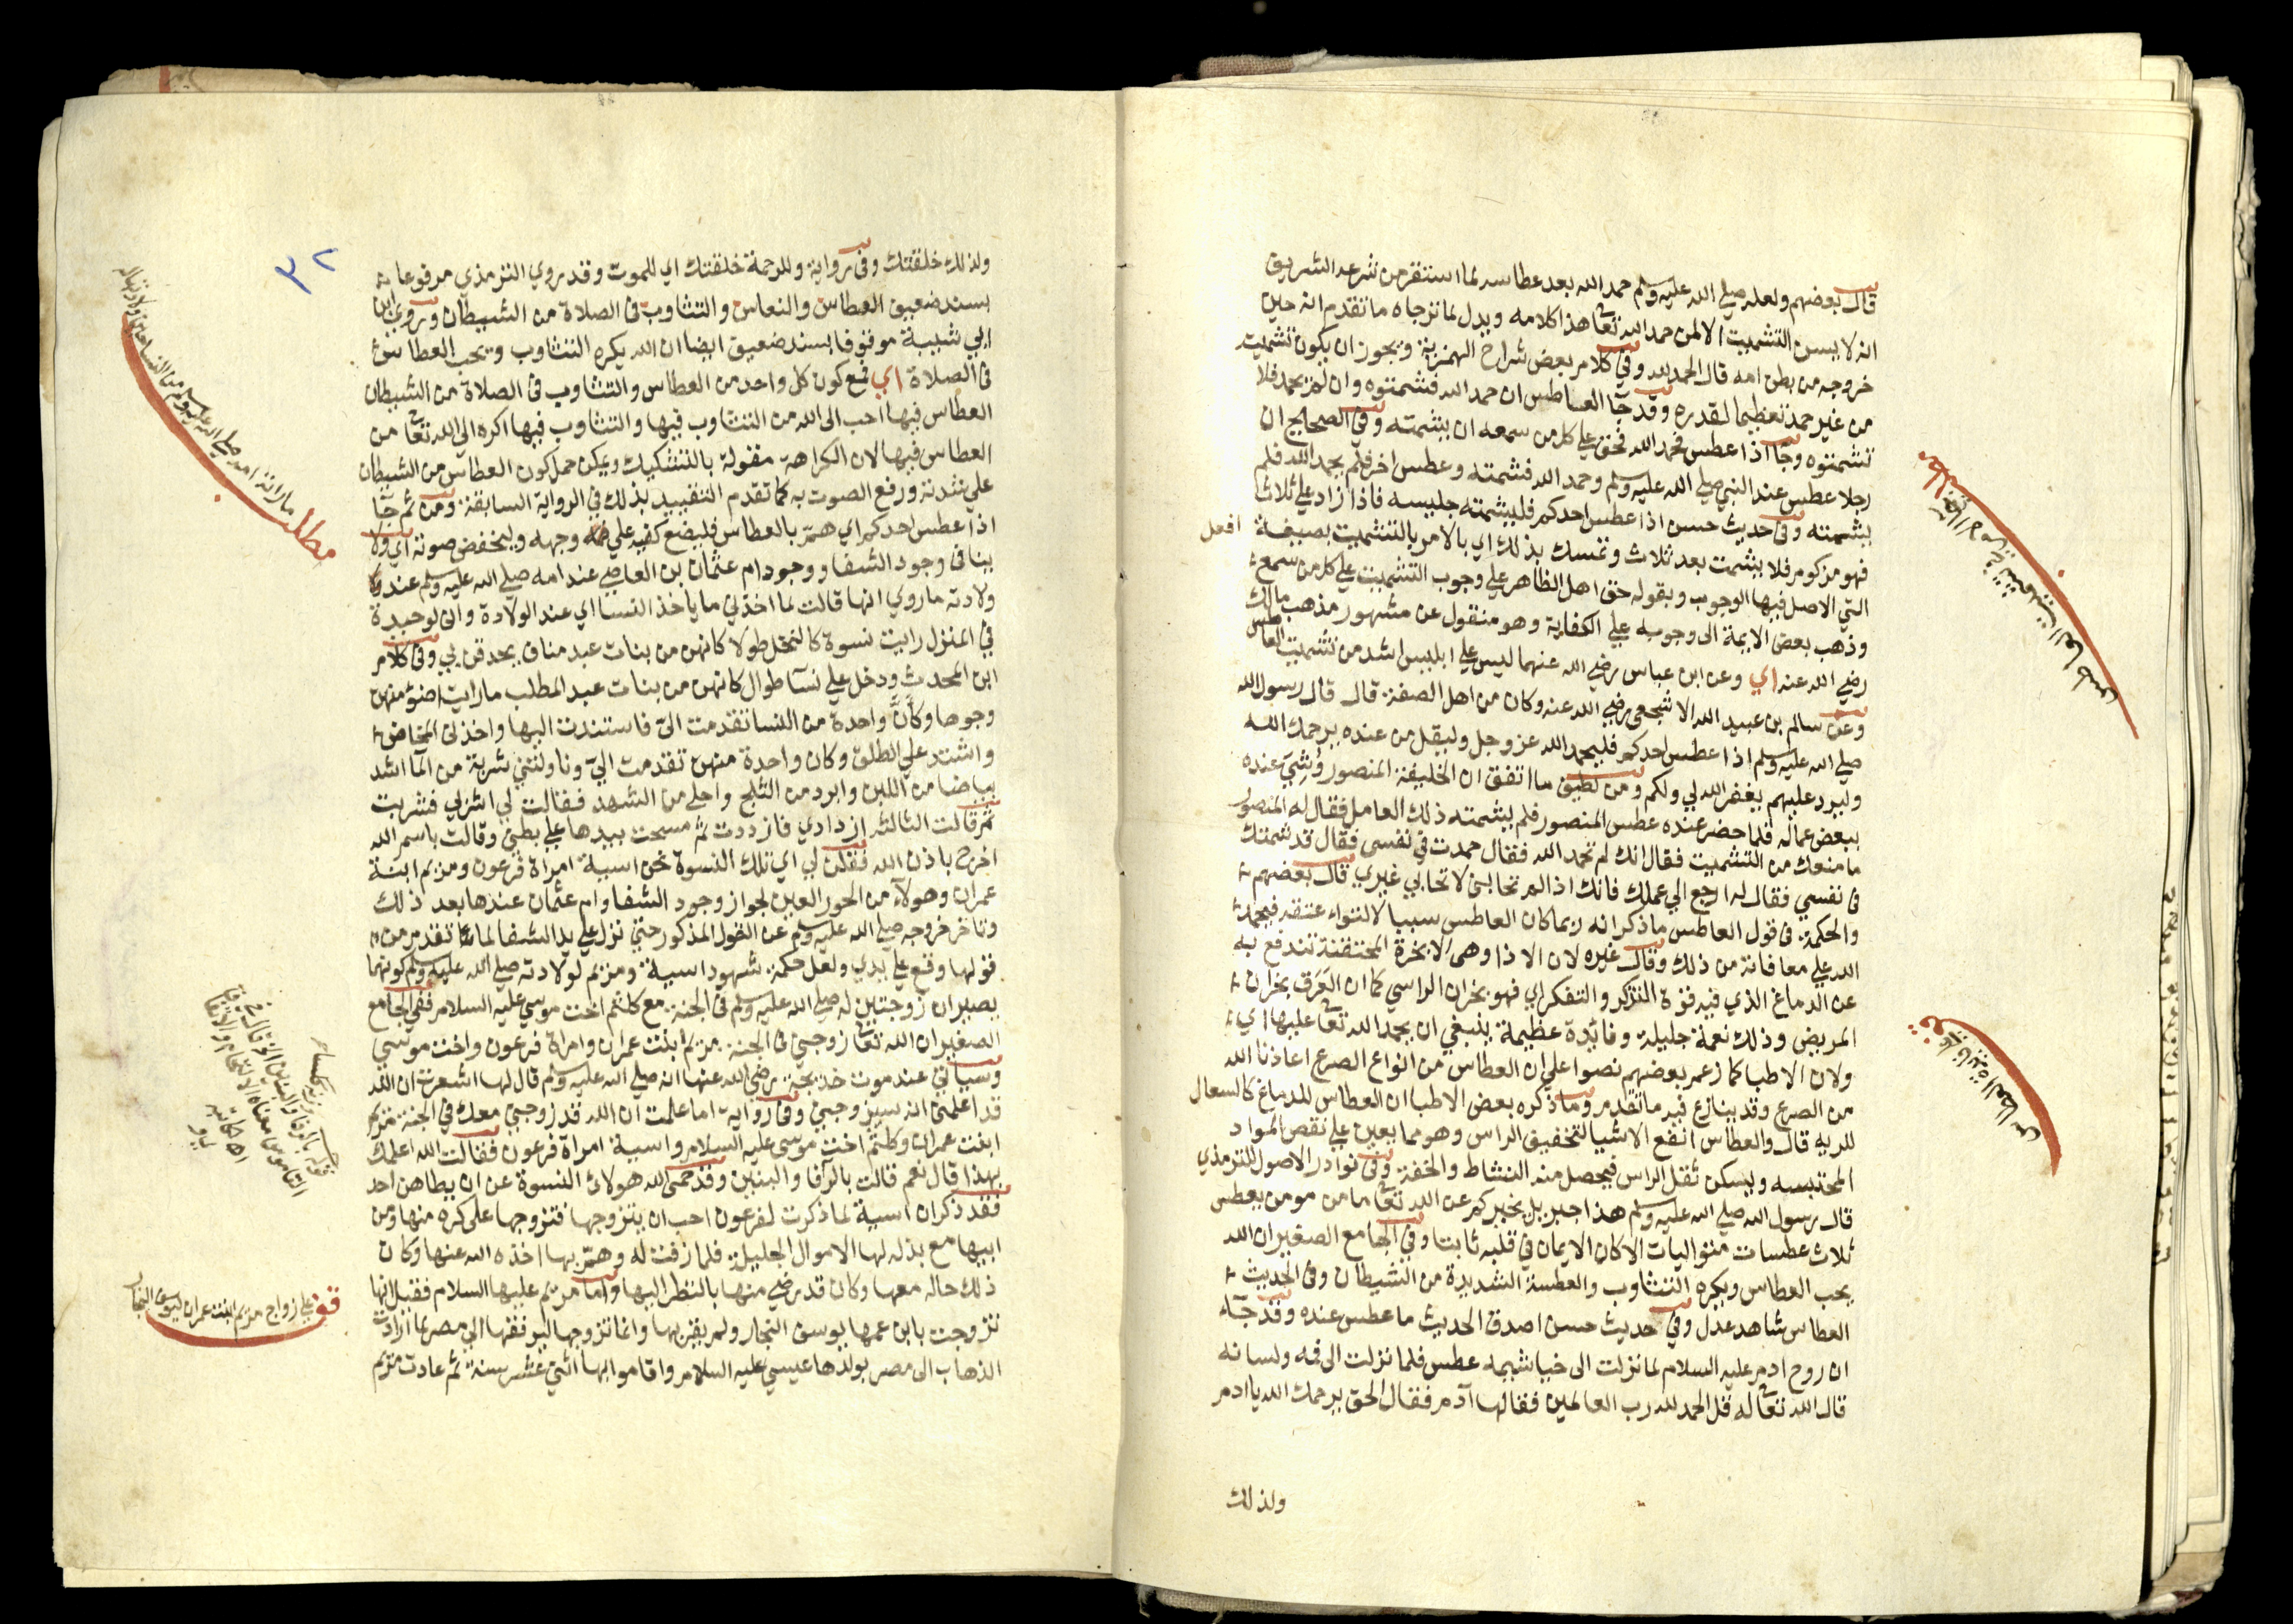 قال بعضهم ولعله صلي الله عليه وسلم حمد الله بعد عطاسه لما استقر من شرعه الشريف
انه لا يسن التشميت الا لمن حمد الله تعا هذا كلامه ويدل لما ترجاه ما تقدم انه حين
خروجه من بطن امه قال الحمد لله وفي كلام بعض شراح الهمزية ويجوز ان يكون تشميت
من غير حمد تعظيما لقدره وقد جآ العاطس ان حمد الله فشمتوه وان لم يحمد فلا
تشمتوه وجآ اذا عطس فحمد الله فحق علي كل من سمعه ان يشمته وفي الصحيح ان
رجلا عطس عند النبي صلي الله عليه وسلم وحمد الله فشمته وعطس اخر فلم يحمد الله فلم
يشمته وفي حديث حسن اذا عطس احدكم فليشمته جليسه فاذا زاد علي ثلاث
فهو مزكوم فلا يشمت بعد ثلاث وتمسك بذلك اي بالامر بالتشميت بصيغة افعل
التي الاصل فيها الوجوب وبقوله حق اهل الظاهر علي وجوب التشميت علي كل من سمع
وذهب بعض الايمة الى وجوبه علي الكفاية وهو منقول عن مشهور مذهب مالك
رضي الله عنه اي وعن ابن عباس رضي الله عنهما ليس علي ابليس اشد من تشميت العاطس
وعن سالم بن عبيد الله الاشجعي رضي الله عنه وكان من اهل الصفة قال قال رسول الله
صلي الله عليه وسلم اذا عطس احدكم فليحمد الله عز وجل وليقل من عنده يرحمك الله
وليرد عليهم يغفر الله لي ولكم ومن لطيف ما اتفق ان الخليفة المنصور وشي عنده
ببعض عماله فلما حضر عنده عطس المنصور فلم يشمته ذلك العامل فقال له المنصور
ما منعك من التشميت فقال انك لم تحمد الله فقال حمدت في نفسي فقال قد شمتك
في نفسي فقال له ارجع الي عملك فانك اذا لم تحابني لا تحابي غيري قال بعضهم
والحكمة في قول العاطس ما ذكر انه ربما كان العاطس سببا لالتواء عنقه فيحمد
الله علي معافاته من ذلك وقال غيره لان الاذا وهى الابخرة المحتقنة تندفع به
عن الدماغ الذي فيه قوة التذكر والتفكر اي فهو بخران الراسي كما ان العرق بخران
المريض وذلك نعمة جليلة وفايدة عظيمة ينبغي ان يحمد الله تعا عليها اي
ولان الاطبا كما زعم بعضهم نصوا علي ان العطاس من انواع الصرع اعاذنا الله
من الصرع وقد ينازع فيه ما تقدم وما ذكره بعض الاطبا ان العطاس للدماغ كالسعال
للريه قال والعطاس انفع الاشيا لتخفيف الراس وهو مما يعين علي نقص المواد
المحتبسه ويسكن ثقل الراس فيحصل منه النشاط والخفة وفي نوادر الاصول للترمذي
قال رسول الله صلي الله عليه وسلم هذا جبريل يخبركم عن الله تعا ما من مومن يعطس
ثلاث عطسات متواليات الا كان الايمان في قلبه ثابتا وفي الجامع الصغير ان الله
يحب العطاس ويكره التثاوب والعطسة الشديدة من الشيطان وفي الحديث
العطاس شاهد عدل وفي حديث حسن اصدق الحديث ما عطس عنده وقد جآء
ان روح ادم عليه السلام لما نزلت الى خياشيمه عطس فلما نزلت الى فمه ولسانه
قال الله تعا له قل الحمد لله رب العالمين فقالها آدم فقال الحق يرحمك الله يا ادم
ولذلك
العطاس
٣٢
ولذلك خلقتك وفي رواية وللرحمة خلقتك اي للموت وقد روي الترمذي مرفوعا
بسند ضعيف العطاس والنعاس والتثاوب في الصلاة من الشيطان وروي ابن
ابي شيبة موقوفا بسند ضعيف ايضا ان الله يكره التثاوب ويحب العطاس
في الصلاة اي فمع كون كل واحد من العطاس والتثاوب في الصلاة من الشيطان
العطاس فيها احب الى الله من التثاوب فيها والتثاوب فيها اكره الي الله تعا من
العطاس فيها لان الكراهة مقولة بالتشكيك ويمكن حمل كون العطاس من الشيطان
علي شدته ورفع الصوت به كما تقدم التقييد بذلك في الرواية السابقة ومن ثم جآ
اذا عطس احدكم اي همّ بالعطاس فليضع كفيه علي وجهه وليخفض صوته اي ولا
ينافي وجود الشفا ووجود ام عثمان بن العاصي عند امه صلي الله عليه وسلم عند
ولادته ما روي انها قالت لما اخذني ما ياخذ النسا اي عند الولادة واني لوحيدة
في المنزل رايت نسوة كالنخل طولا كانهن من بنات عبد مناف يحدقن بي وفي كلام
ابن المحدث ودخل علي نسآ طوال كانهن من بنات عبد المطلب ما رايت اضوء منهن
وجوها وكأنّ واحدة من النسا تقدمت الىّ فاستندت اليها واخذني المخاض
واشتد علي الطلق وكان واحدة منهن تقدمت اليّ وناولتني شربة من المآ اشد
بياضا من اللبن وابرد من الثلج واحلي من الشهد فقالت لي اشربي فشربت
ثم قالت الثالثه ازدادي فازددت ثم مسحت بيدها علي بطني وقالت باسم الله
اخرج باذن الله فقلن لي اي تلك النسوة نحن اسية امراة فرعون ومريم ابنة
عمران وهولآء من الحور العين لجواز وجود الشفا وام عثمان عندها بعد ذلك
وتاخر خروجه صلي الله عليه وسلم عن القول المذكور حتي نزل علي يد الشفا لما تقدم من
قولها وقع علي يدي ولعل حكمة شهود اسية ومريم لولادته صلي الله عليه وسلم كونهما
يصيران زوجتين له صلي الله عليه وسلم في الجنة مع كلثم اخت موسي عليه السلام ففي الجامع
الصغير ان الله تعا زوجني في الجنة مريم ابنت عمران وامراة فرعون واخت موسي
وسياتي عند موت خديجة رضي الله عنها انه صلي الله عليه وسلم قال لها اشعرت ان الله
قد اعلمني انه سيزوجني وفي رواية اما علمت ان الله قد زوجني معك في الجنة مريم
ابنت عمران وكلثم اخت موسى عليه السلام واسية امراة فرعون فقالت الله اعلمك
بهذا قال نعم قالت بالرفا والبنين وقد حمي الله هولاء النسوة عن ان يطاهن احد
فقد ذكر ان اسية لما ذكرت لفرعون احب ان يتزوجها فتزوجها على كره منها ومن
ابيها مع بذله لها الاموال الجليلة فلما زفت له وهمّ بها اخذه الله عنها وكان
ذلك حاله معها وكان قد رضي منها بالنظر اليها واما مريم عليها السلام فقيل انها
تزوجت بابن عمها يوسف النجار ولم يقربها وانما تزوجها ليرفقها الي مصر لما ارادت
الذهاب الى مصر بولدها عيسي عليه السلام واقاموا بها اثني عشر سنة ثم عادت مريم
مطلب ما راته امه صلي الله عليه وسلم من النسا
قف علي زواج مريم ابنت عمران ليوسف النجار